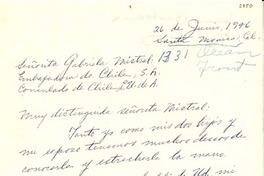 26 de Junio, 1946
Santa Monica, Cal.
Señorita Gabriela Mistral: 1331 Ocean
Embajadora de Chile, S.A. Front
Consulado de Chile, EU. de A.
Muy distinguida señorita Mistral:
Tanto yo como mis dos hijos y
mi esposo tenemos muchos deseos de
conocerla y estrecharle la mano.